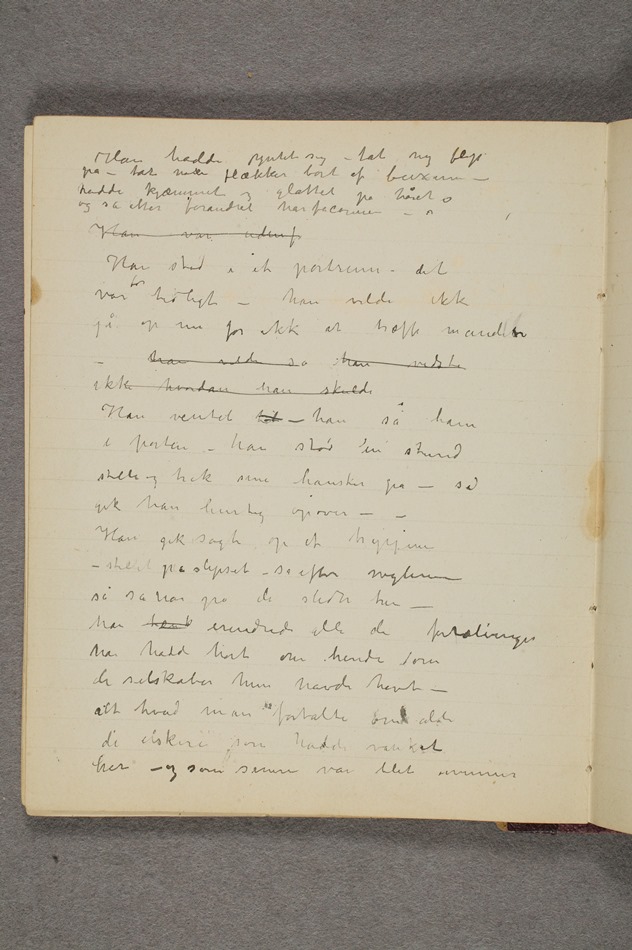 Han hadde pyntet sig – tat ny flip
på – tat noen flækker bort af buxerne –
hadde kjæmmet og glattet på håret
og så etter forandret harfaconen –
Han var
Han stod i et portrum – det
var for tidligt – han vilde ikk
gå op nu for ikk at træffe manden
– han vilde så han vidste
ikke hvordan han skulde
Han ventet – han så ham
i porten – han stod en stund
stille og trak sine hansker på – så
gik han hurtig opover – –
Han gik sagte op et
– på slipset – så efter neglene
så på de
han erindrede alle de fortællinger
han hadd hørt om hende som
de selskaber hun havde havt –
alt hvad man fortalte om alde
de elskere som hadde vanket
her – og som senere var blet